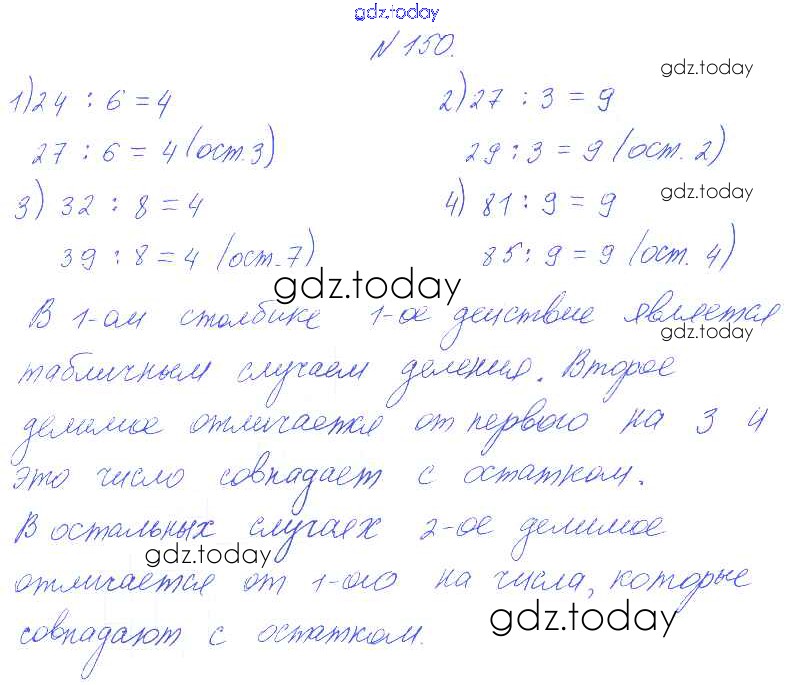 gdz.today
№ 150.
gdz.today
1) 24 : 6 = 4 2) 27 : 3 = 9
27 : 6 = 4 (ост. 3) 29 : 3 = 9 (ост. 2)
gdz.today
3) 32 : 8 = 4 4) 81 : 9 = 9
39 : 8 = 4 (ост. 7) 85 : 9 = 9 (ост. 4)
gdz.today
В 1-ом столбике 1-ое действие является
gdz.today
табличным случаем деления. Второе
делимое отличается от первого на 3 и
это число совпадает с остатком.
В остальных случаях 2-ое делимое
gdz.today
отличается от 1-ого на числа, которые
совпадают с остатком.
gdz.today